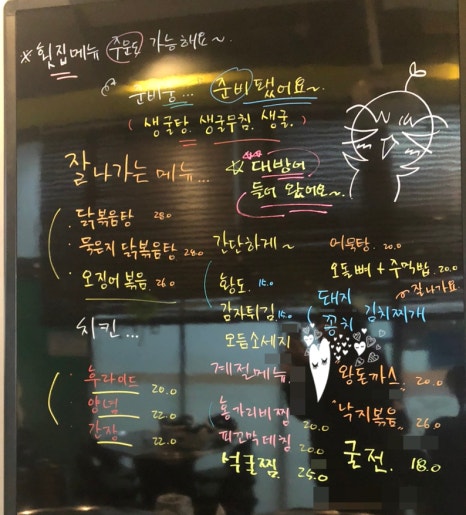 ※ 횟집메뉴 주문도 가능해요~
준비중... 준비됐어요~
( 생굴탕. 생굴무침. 생굴. )
잘 나가는 메뉴...
☆ 대방어
들어 왔어요~
닭볶음탕 28.0
묵은지 닭볶음탕 28.0
오징어 볶음. 26.0
간단하게~
황도. 15.0
감자튀김 15.0
모듬소세지
어묵탕. 20.0
오돌뼈 + 주먹밥. 20.0
잘나가요.
돼지 김치찌개
꽁치
치킨...
후라이드 20.0
양념 22.0
간장 22.0
계절메뉴.
홍가리비찜 20.0
피꼬막데침 20.0
석굴찜. 25.0
왕돈까스. 20.0
"낙지볶음" 26.0
굴전. 18.0